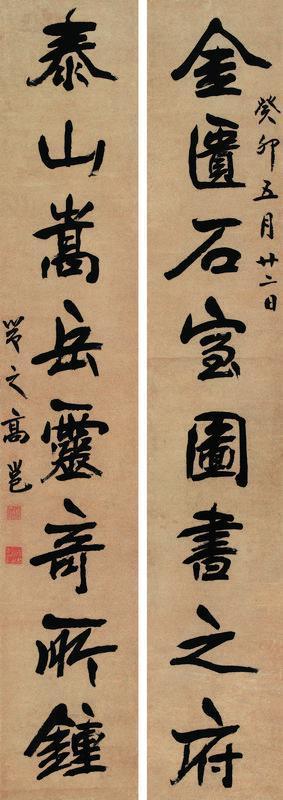 金匱石室圖書之府
癸卯五月廿二日
泰山嵩岳靈奇所鍾
高邕